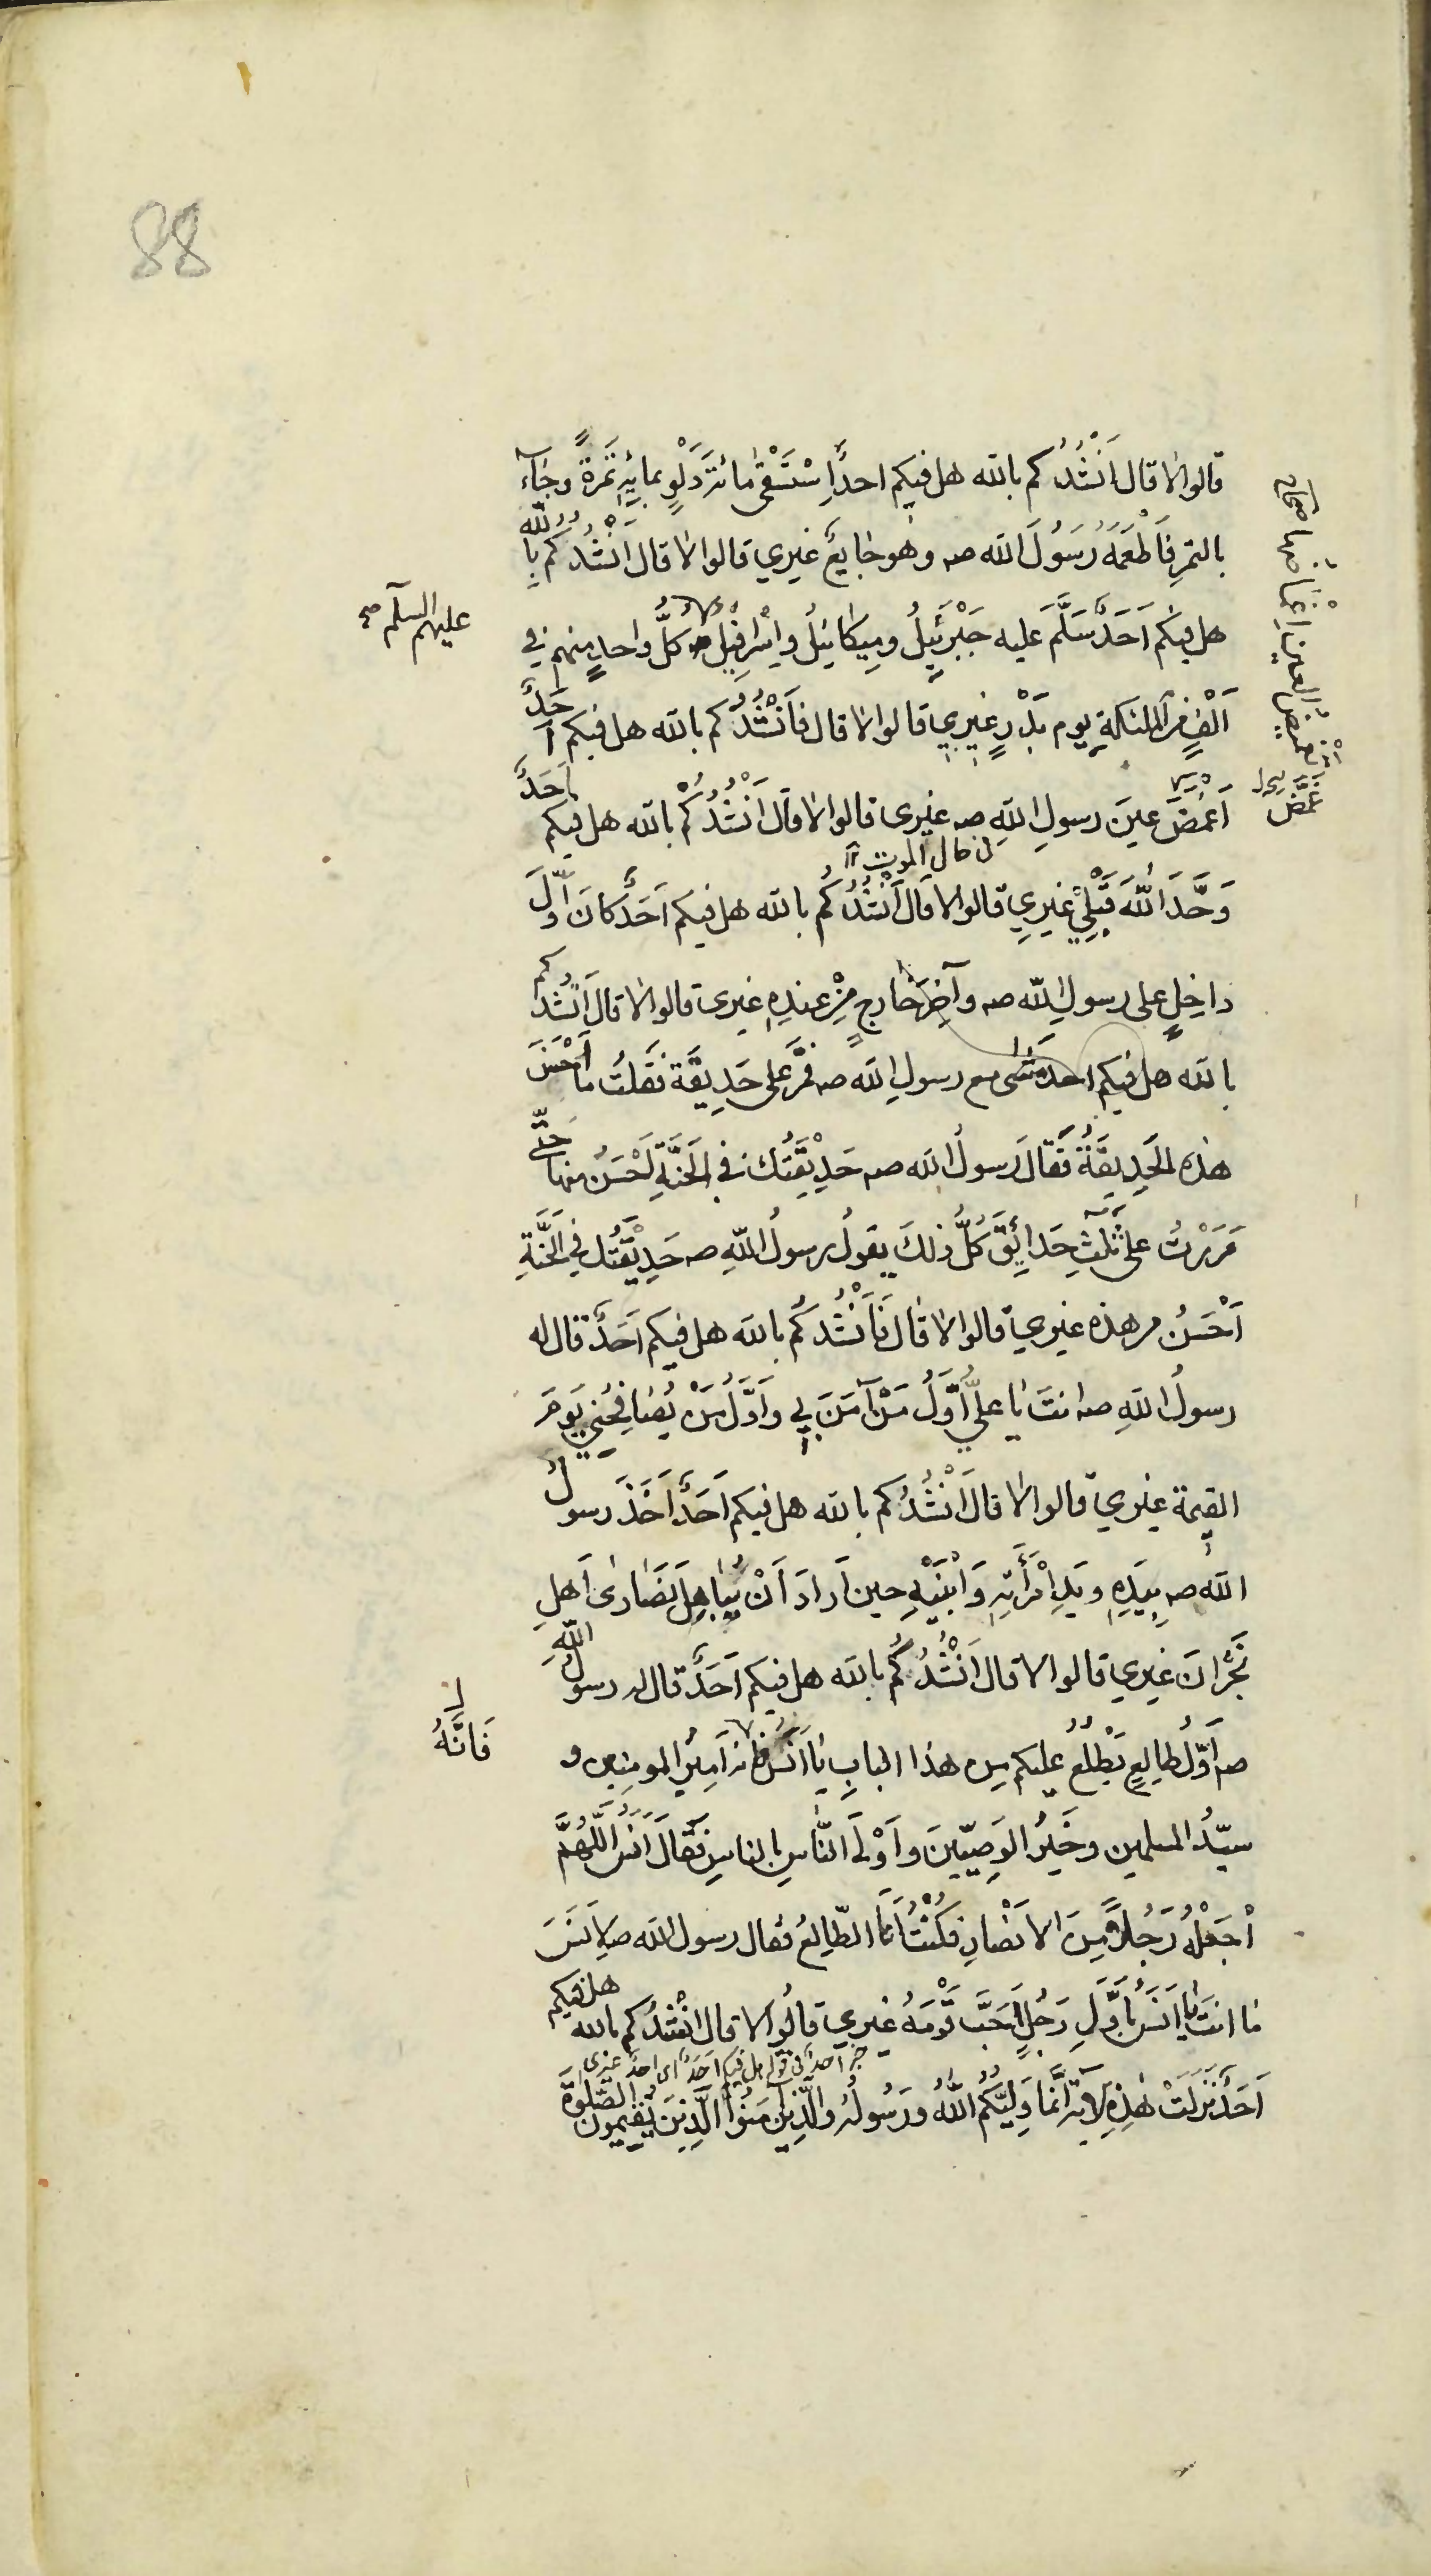 88
قالوا لا قال اَنْشُدُكم بالله هل فيكم احدٌ اِسْتَسْقىٰ مائةَ دَلْوٍ بمايةِ تَمرَةً وجٰاءَ
بالتمرِ فَاَطْعَمَهُ رَسُولَ الله صه وهُو جٰايعٌ غيري قالوا لا قال اَنْشُدُكُم بِالله
هل فيكم اَحَدٌ سَلَّمَ عليه جَبْرَئيلُ ومِيكٰائيلُ واِسْرٰافيلُ كلُّ واحدٍ منهم في
عليهم السلٰم صح
اَلْفٍ مِنَ الملٰئكةِ يوم بَدْرٍ غيري قالوا لا قال فاَنْشُدُكم بالله هل فيكم اَحَدٌ
اَغْمَضَ عينَ رسولِ اللهِ صه غيرى قالوا لا قال اَنْشُدُكُمْ بالله هل فيكم اَحَدٌ
غَمَّضَ يل
في حال الموت
وَحَّدَ اللهَ قَبْلي غيرِي قالوا لا قال اَنْشُدُكُم بالله هل فيكم اَحَدٌ كانَ اَوّلَ
داخِلٍ على رسولِ الله صه وآخِرَ خارجٍ مِنْ عندِهِ غيرى قالوا لا قال اَنْشُدُكم
بالله هل فيكم احدٌ مَشىٰ مع رسولِ الله صه فمَرَّ على حَدِيقَة فَقلتُ ما اَحْسَنَ
هذه الحَدِيقَةُ فَقالَ رسولُ الله صه حَدِيْقَتُكَ في الجَنَّةِ اَحْسَنُ منها حَتّٰى
مَرَرْتُ على ثَلٰثِ حَدائِقَ كُلُّ ذلكَ يقولُ رسولُ اللهِ صه حَدِيْقَتُك فِي الجَنَّةِ
اَحْسَنُ من هذه غيري قالوا لا قال فَاَنْشُدُكُم بالله هل فيكم اَحَدٌ قال له
رسولُ اللهِ صه انتَ يٰا عليُّ اَوّلُ مَنْ آمَنَ بي واَوَّلُ مَنْ يُصٰافِحُني يَومَ
القيٰمة غيري قالوا لا قال اَنْشُدُكم بالله هل فيكم اَحَدٌ اَخَذَ رسولُ
الله صه بِيَدِهِ ويَدِ اِمْرَأَتِهِ وَابْنَيْهِ حين اَرادَ اَنْ يُبٰاهِلَ نَصٰارىٰ اَهلِ
نَجْرٰانَ غيري قالوا لا قال اَنْشُدُكُم بالله هل فيكم اَحَدٌ قال له رسولُ اللهِ
صه اَوّلُ طالِعٍ يَطْلُعُ عليكم من هٰذا البابِ يٰا اَنَسُ فانه اَمِيرُ المومنين و
فَاِنَّهُ
سيّدُ المسلمين وخَيرُ الوَصِيّينَ واَوْلَى النّاسِ بالناسِ فَقالَ اَنَسُ اللّهُمَّ
اجْعَلْهُ رَجُلاً مِنَ الاَنْصٰارِ فكُنْتُ اَنَا الطّالِعَ فقال رسول الله صه لِاَنَسَ
مٰا انتَ يٰا اَنَسُ بِاَوَّلِ رَجُلٍ اَحَبَّ قَوْمَهُ غيري قالُوا لا قال اَنْشُدُكم بالله هل فيكم
خبر احد في قوله هل فيكم اَحَدٌ اى احد غيرى
اَحَدٌ نَزَلَتْ هٰذِهِ الآيَةُ اِنَّما وَلِيُّكُم اللهُ ورَسُولُهُ والَّذِينَ آمَنُوا الَّذِينَ يُقيمون الصَّلٰوةَ